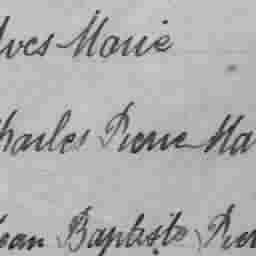 Yves Marie
Charles Pierre Ma
Jean Baptiste Pier